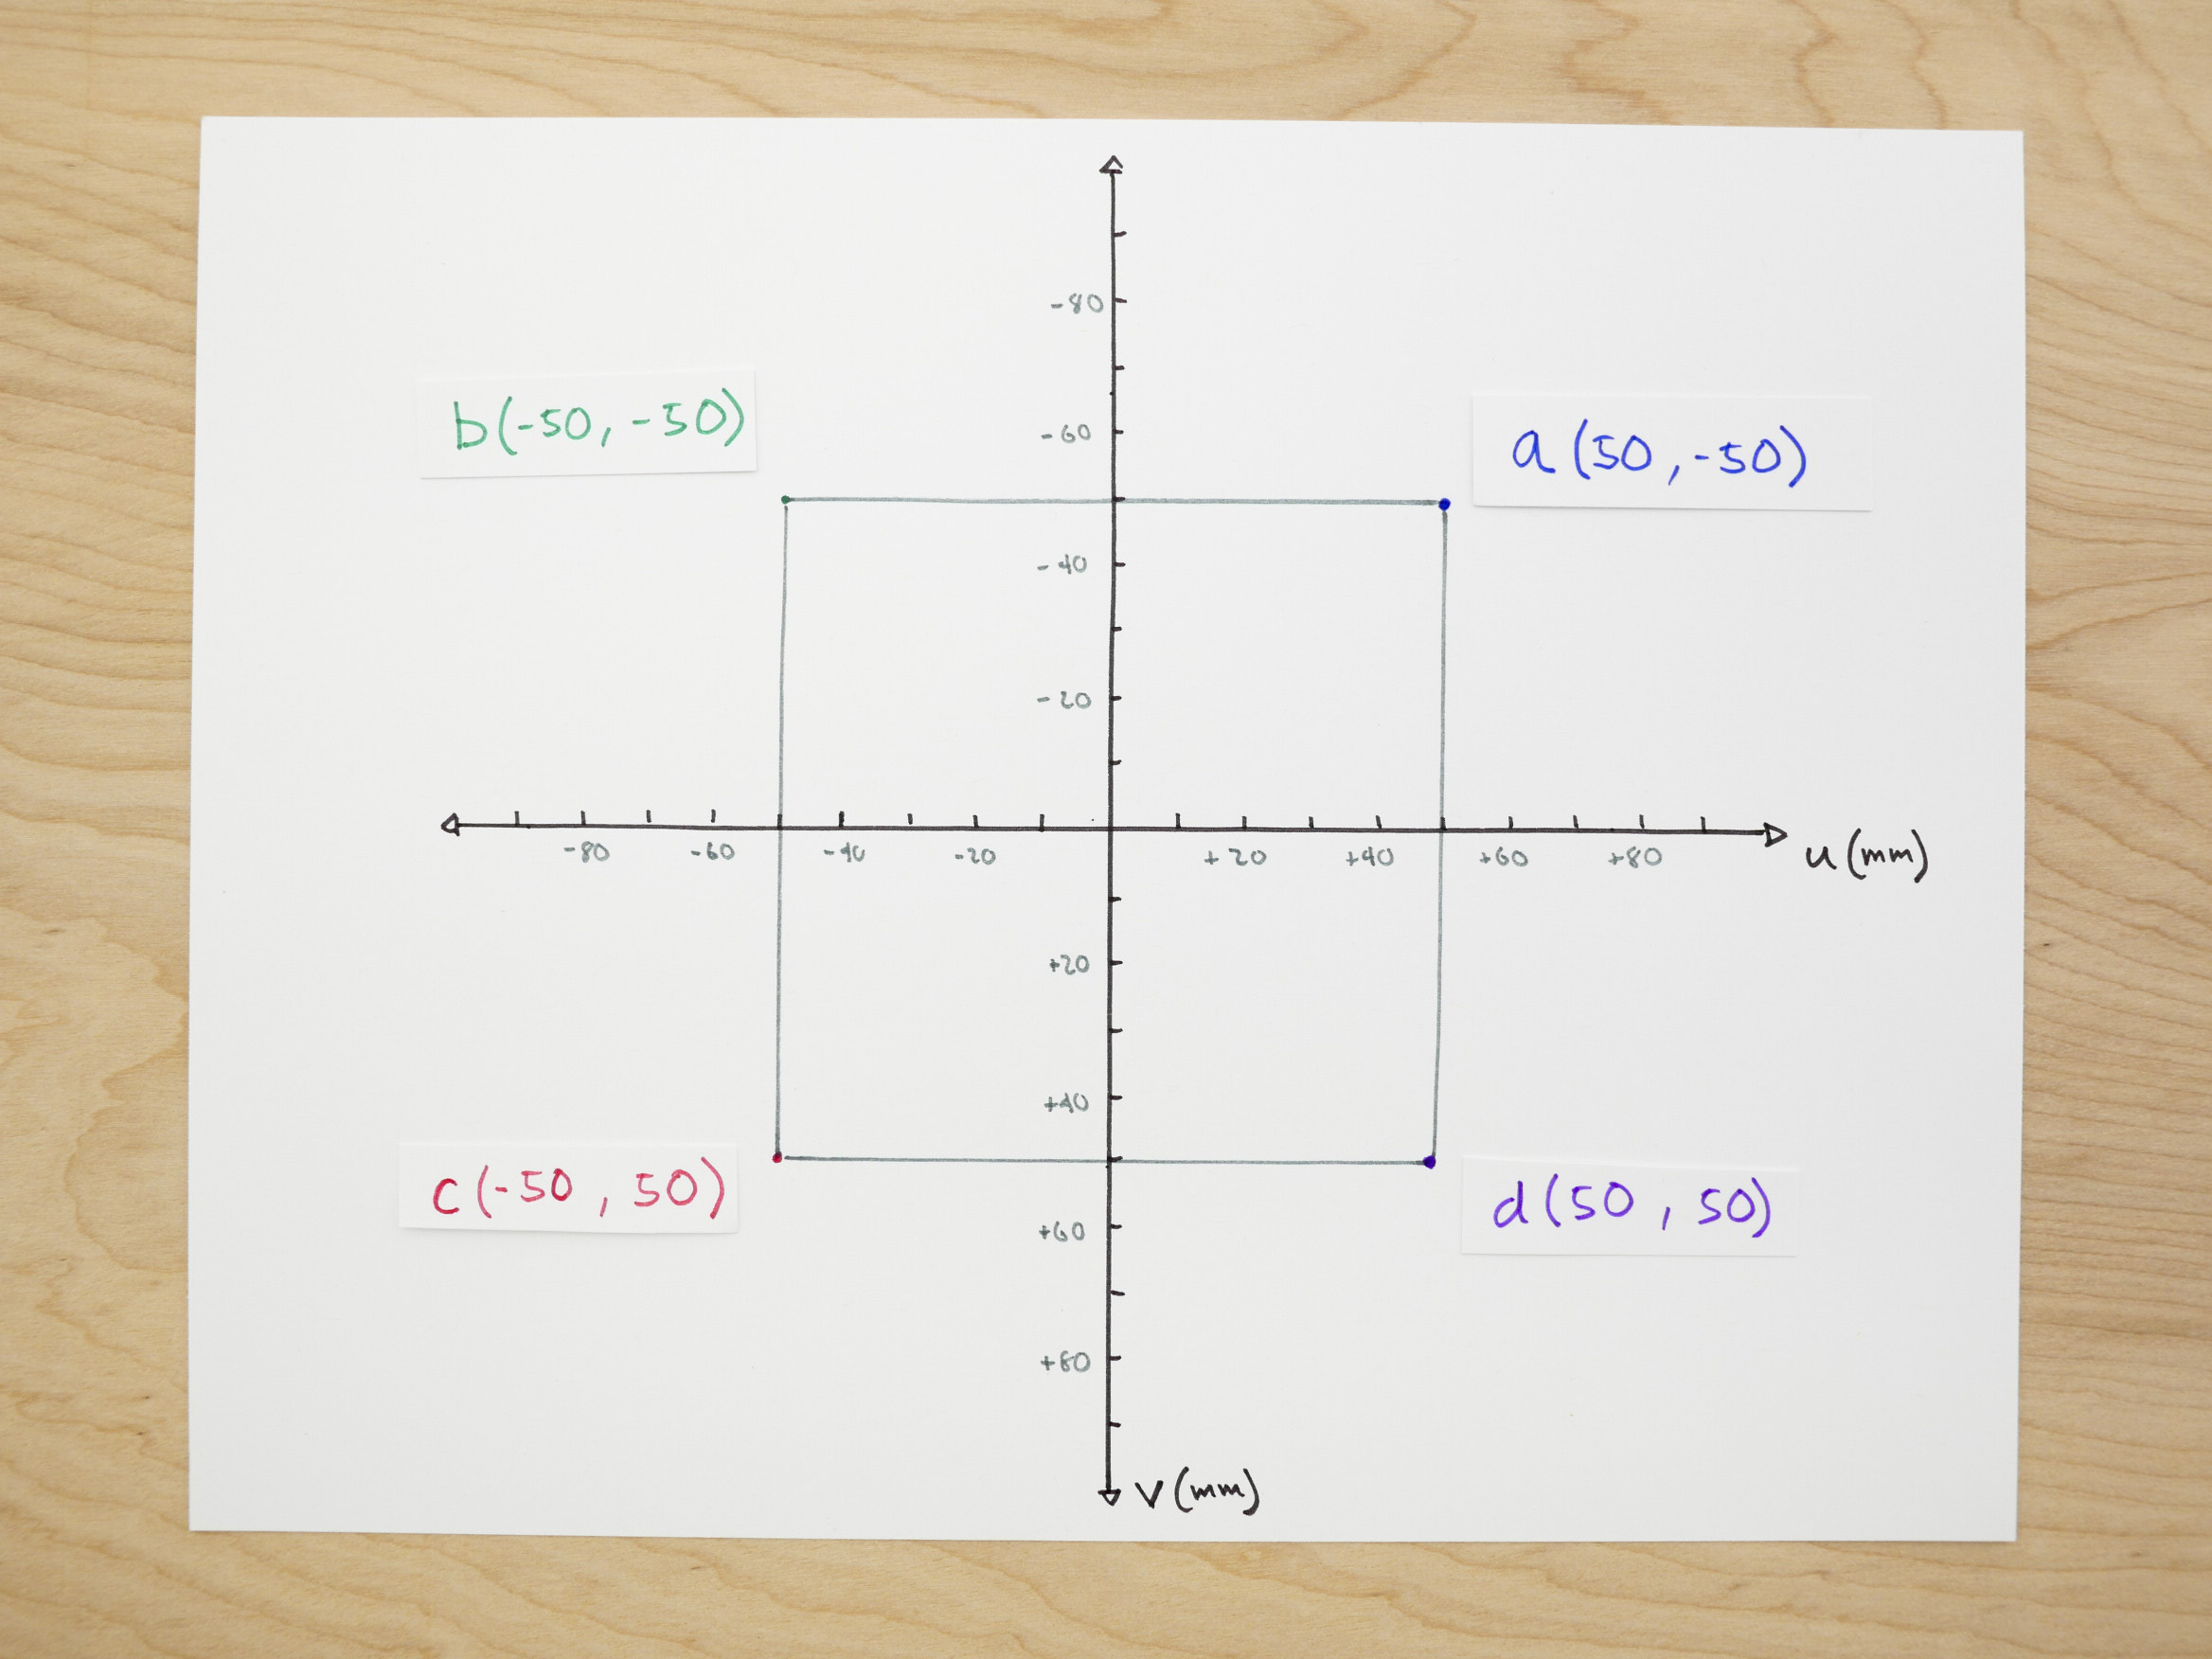 -80
b(-50, -50)
-60
a (50, -50)
-40
-20
-80 -60 -40 -20 +20 +40 +60 +80
u (mm)
+20
+40
c (-50, 50)
d (50, 50)
+60
+80
v (mm)